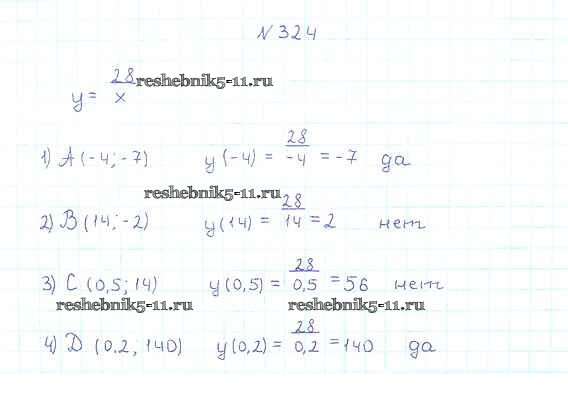 № 324
y = 28/x reshebnik5-11.ru
1) A (-4; -7) y(-4) = 28/-4 = -7 да
reshebnik5-11.ru
2) B (14; -2) y(14) = 28/14 = 2 нет
3) C (0,5; 14) y(0,5) = 28/0,5 = 56 нет
reshebnik5-11.ru reshebnik5-11.ru
4) D (0,2; 140) y(0,2) = 28/0,2 = 140 да